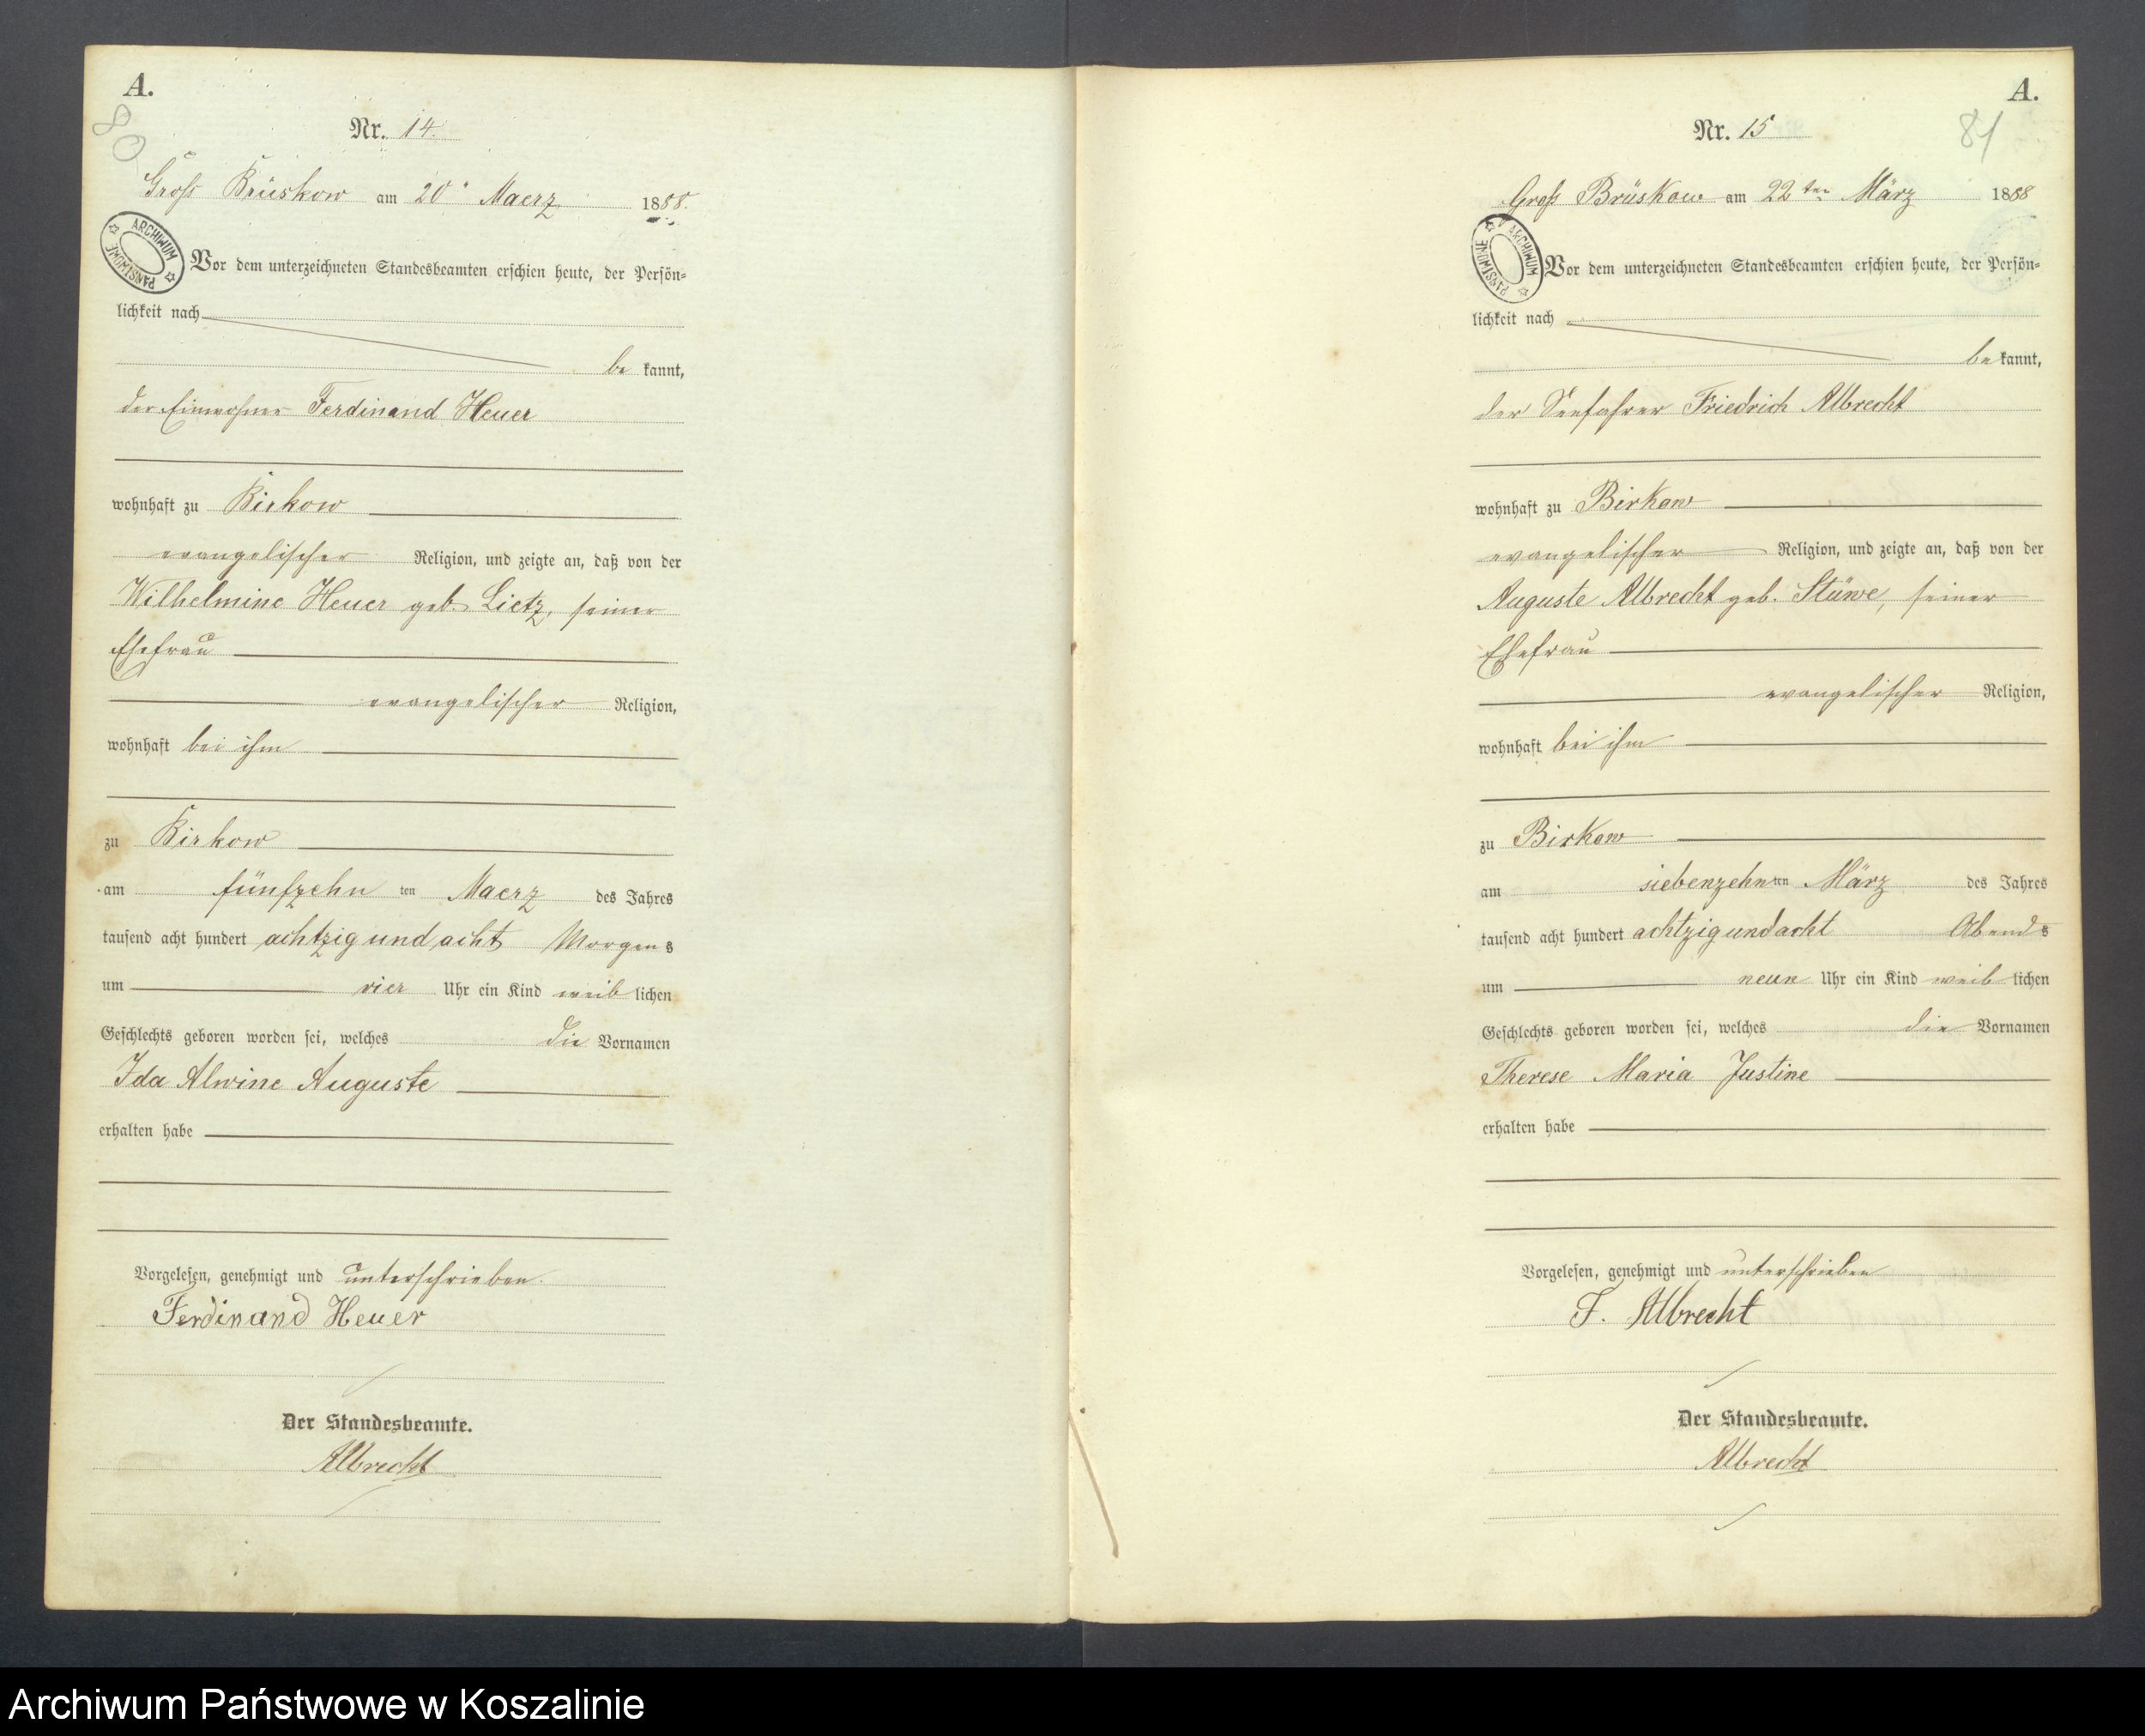 A.
80
Nr. 14.
Gross Brüskow am 20. Maerz 1888.
ARCHIWUM PAŃSTWOWE
Vor dem unterzeichneten Standesbeamten erschien heute, der Persön=
lichkeit nach
be kannt,
der Einwohner Ferdinand Heuer
wohnhaft zu Birkow
evangelischer Religion, und zeigte an, daß von der
Wilhelmine Heuer geb. Lietz, seiner
Ehefrau
evangelischer Religion,
wohnhaft bei ihm
zu Birkow
am fünfzehn ten Maerz des Jahres
tausend acht hundert achtzig und acht Morgens
um vier Uhr ein Kind weib lichen
Geschlechts geboren worden sei, welches die Vornamen
Ida Alwine Auguste
erhalten habe
Vorgelesen, genehmigt und unterschrieben.
Ferdinand Heuer
Der Standesbeamte.
Albrecht
A.
81
Nr. 15
Groß Brüskow am 22ten März 1888
ARCHIWUM PAŃSTWOWE
Vor dem unterzeichneten Standesbeamten erschien heute, der Persön=
lichkeit nach
be kannt,
der Seefahrer Friedrich Albrecht
wohnhaft zu Birkow
evangelischer Religion, und zeigte an, daß von der
Auguste Albrecht geb. Stüwe, seiner
Ehefrau
evangelischer Religion,
wohnhaft bei ihm
zu Birkow
am siebenzehn ten März des Jahres
tausend acht hundert achtzig und acht Abends
um neun Uhr ein Kind weib lichen
Geschlechts geboren worden sei, welches die Vornamen
Therese Maria Justine
erhalten habe
Vorgelesen, genehmigt und unterschrieben
F. Albrecht
Der Standesbeamte.
Albrecht
Archiwum Państwowe w Koszalinie